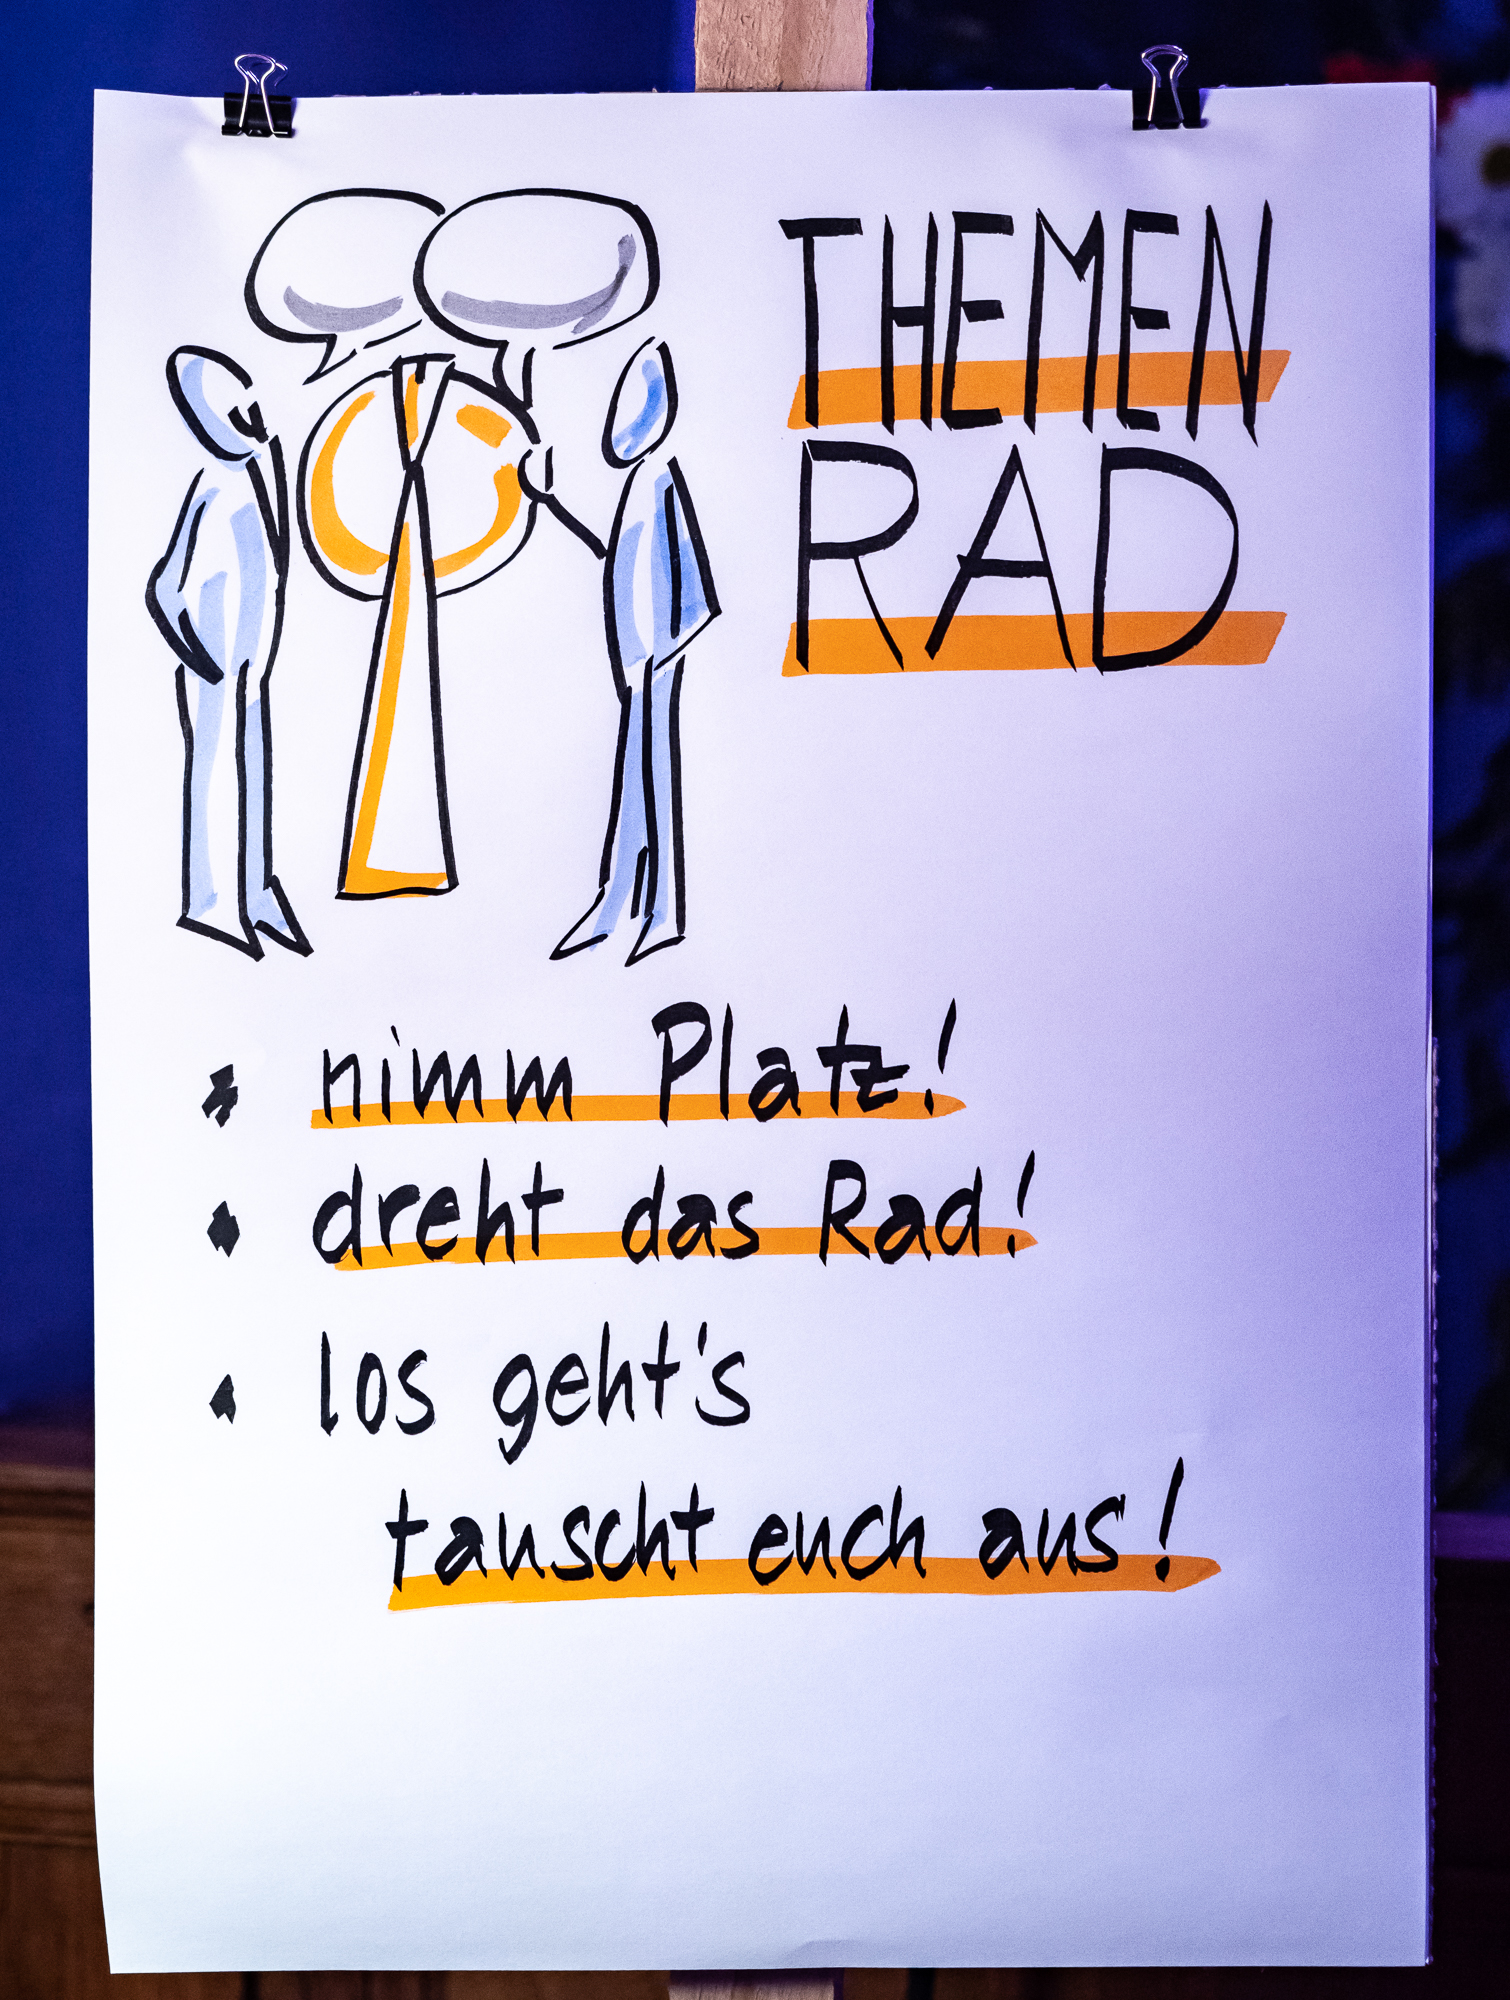 THEMEN
RAD
nimm Platz!
dreht das Rad!
los geht's
tauscht euch aus!